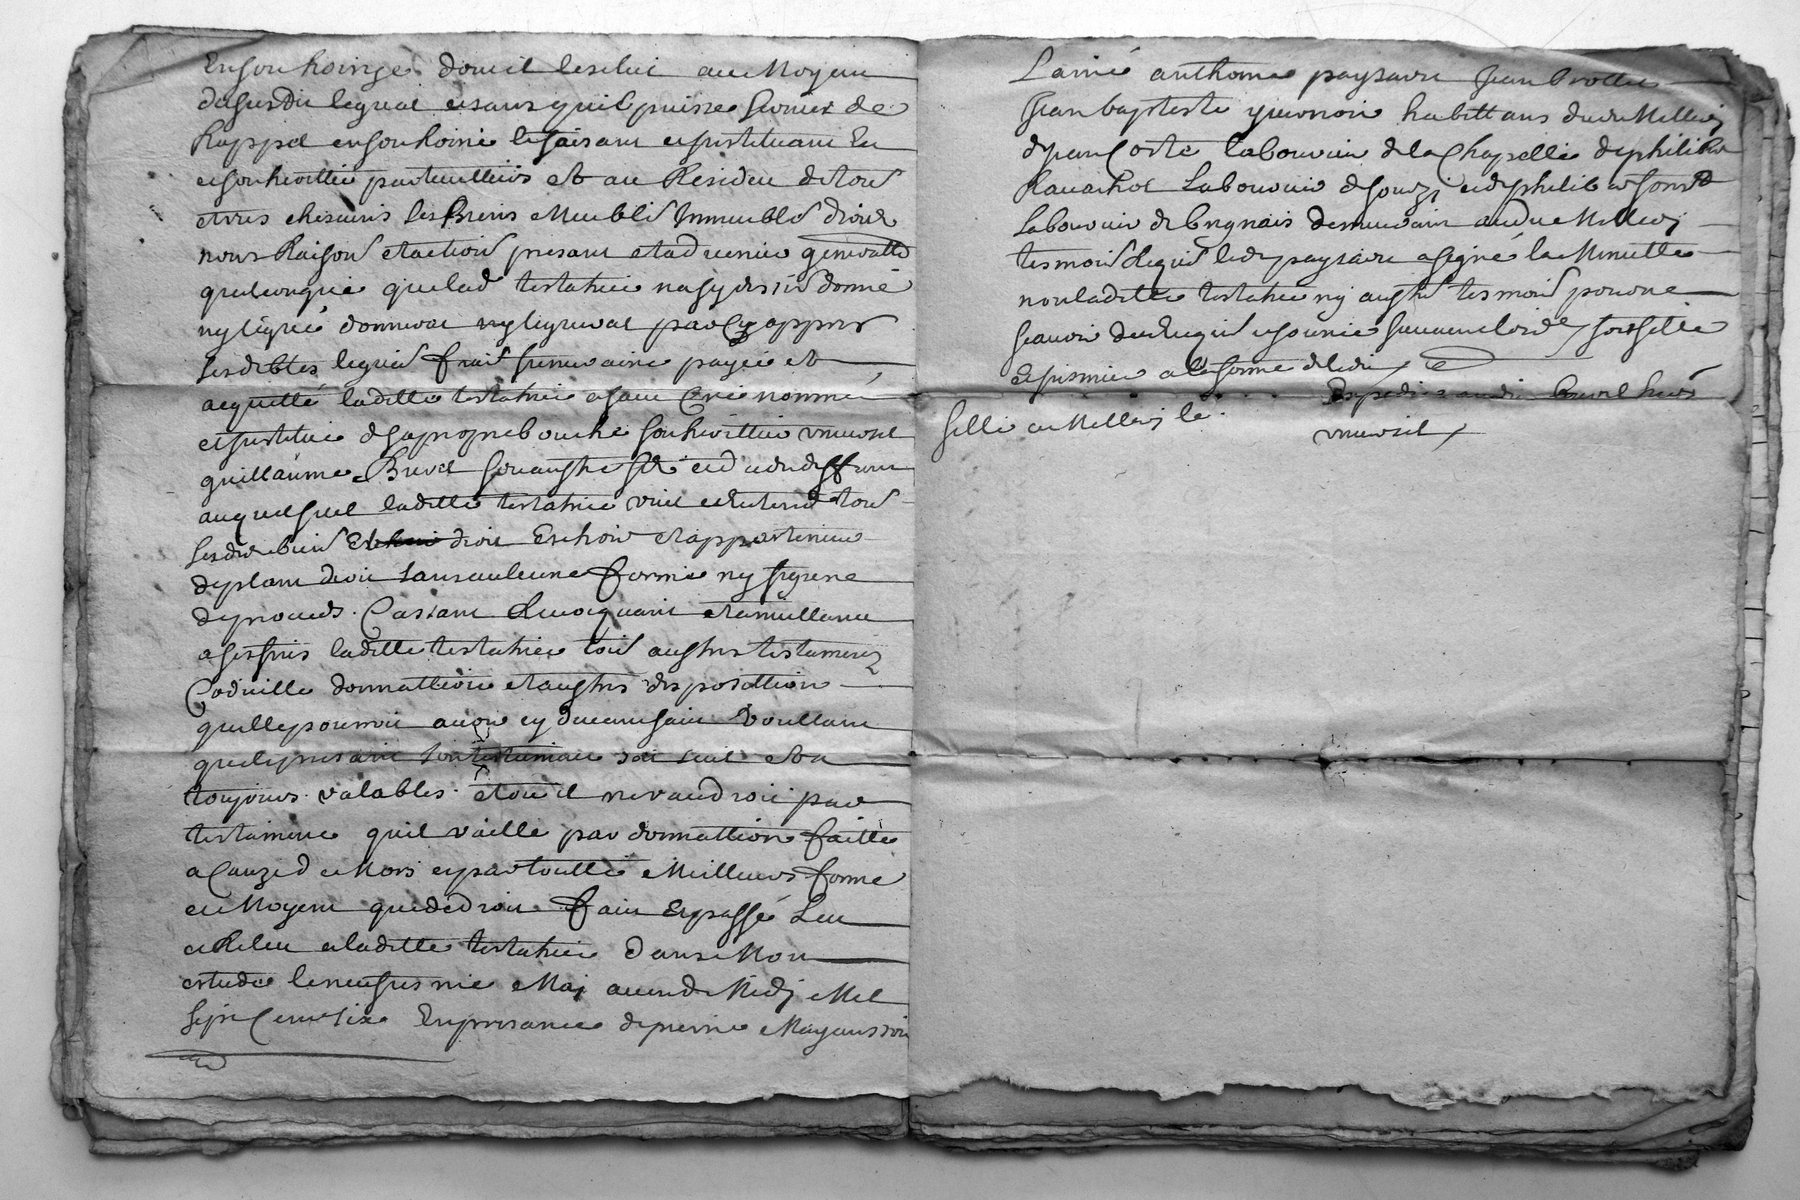 En son hoirye dont il lesclut au Moyen
dususdit legat et sans quil puisse former de
Rappel en son hoirie le faisant et instituant En
et son herittier particulliers et au Residu de tous
et uns chescuns ses Biens Meubles Immeubles droits
noms Raisons et actions present et aduenir generallt
quelconques que lad testatrice na cy dessus donné
ny legué donnera ny leguera par cy appres
ses debtes legats frais funeraire payés et
acquitté laditte testatrice a faict Crée nommé
et institué de sa propre bouche son herittier universel
guillaume Buret son austre fils et dudit deffunt
auquel seul laditte testatrice veut et entend tous
sesdits biens droit Eschoir et appartenir
de plain droit sans aulcune forme ny figure
de proces. Cassant Revocquant et annullant
a ces fins laditte testatrice tous austres testaments
Codicille donnattions et austres disposittion
quelle pourroit avoir cy devant faict Voullant
que le present son testament soit seul et a
toujours valables. et ou il ne vaudroit par
testament quil vaille par donnattion faitte
a Cauze de Mort et par toutte Meilleurs forme
et Moyens que de droit fait Et passé Leu
et Releu a laditte testatrice dans Mon
estude le neufviesme May avend Midy Mil
sept Cent six En presance de pierre Mayaussoin
Lainé anthoine paysavre Jean
Jean baptiste habittans dud Millery
de jean Coste laboureur de la Chapelle de philibert
Ravachol Laboureur de Souzy et de philibert
laboureur de brignais demeurant aud Millery
tesmoins Requis led paysavre a signé la Minutte
non laditte testatrice ny austres tesmoins pour ne
scavoir de ce Requis et sommés suivant lordce
a la forme de ledit
Expedié audit Buret hers
universel
Sellé a Millery le.